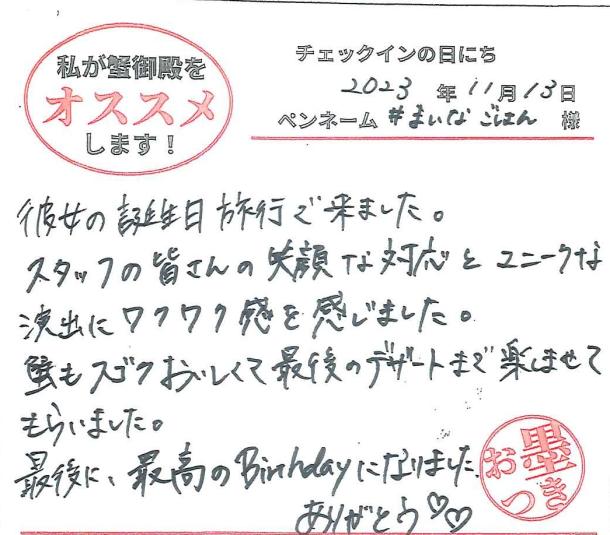 私が蟹御殿を
オススメ
します！
チェックインの日にち
2023年11月13日
ペンネーム #まいなごはん 様
彼女の誕生日旅行で来ました。
スタッフの皆さんの笑顔な対応とユニークな
演出にワクワク感を感じました。
蟹もスゴクおいしくて最後のデザートまで楽しませて
もらいました。
最後に、最高のBirthdayになりました。
ありがとう♡♡
お墨つき